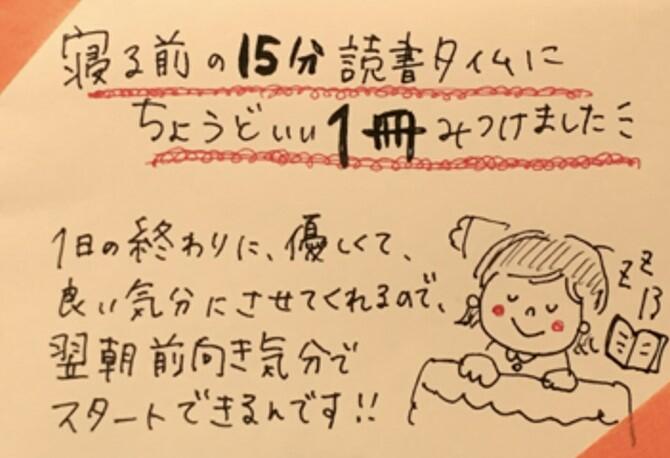 寝る前の15分読書タイムに
ちょうどいい1冊みつけました
1日の終わりに、優しくて、
良い気分にさせてくれるので、
翌朝前向き気分で
スタートできるんです!!
zz